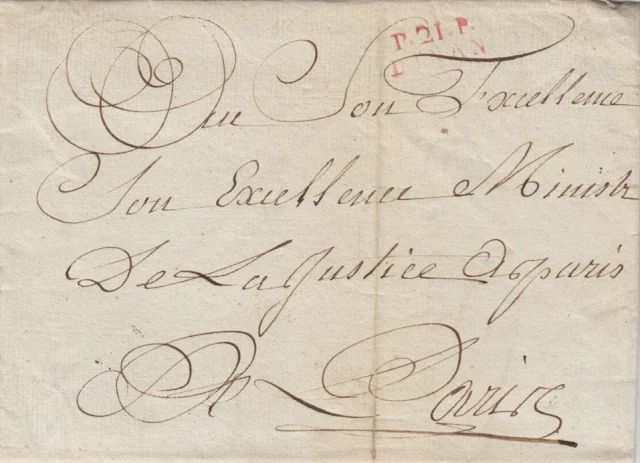 P.21.P.
Son Excellence
Son Excellence Ministr
De La Justice A paris
A Paris